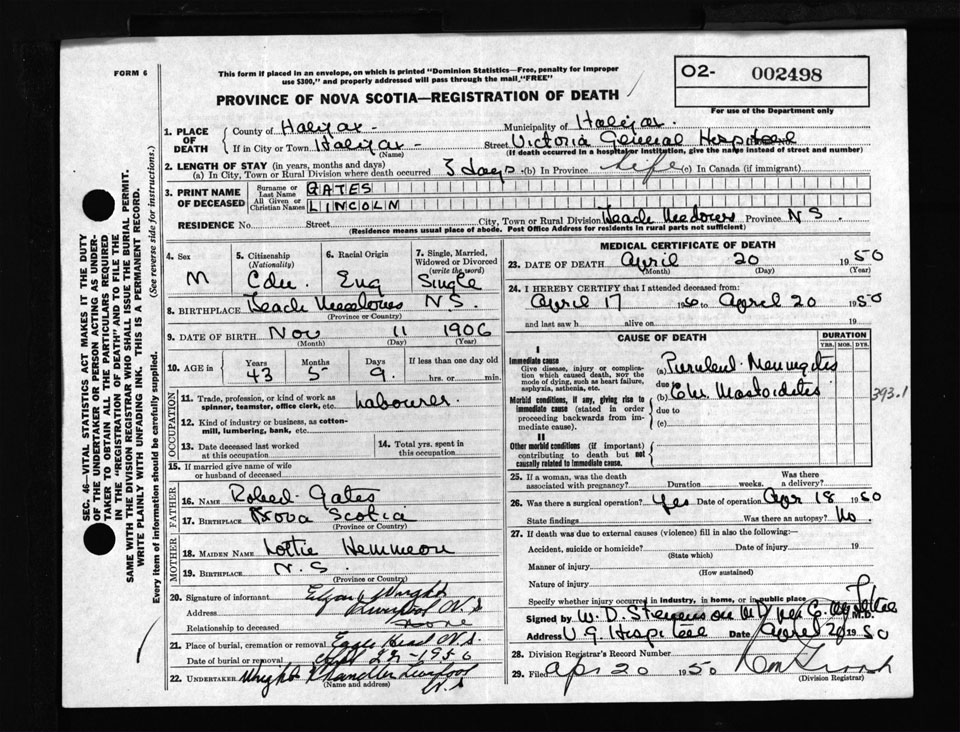 FORM 6
This form if placed in an envelope, on which is printed "Dominion Statistics—Free, penalty for improper
use $300," and properly addressed will pass through the mail, "FREE"
PROVINCE OF NOVA SCOTIA—REGISTRATION OF DEATH
O2- 002498
For use of the Department only
SEC. 46—VITAL STATISTICS ACT MAKES IT THE DUTY
OF THE UNDERTAKER OR PERSON ACTING AS UNDER-
TAKER TO OBTAIN ALL THE PARTICULARS REQUIRED
IN THE "REGISTRATION OF DEATH" AND TO FILE THE
SAME WITH THE DIVISION REGISTRAR WHO SHALL ISSUE THE BURIAL PERMIT.
WRITE PLAINLY WITH UNFADING INK. THIS IS A PERMANENT RECORD.
Every item of information should be carefully supplied. (See reverse side for instructions.)
1. PLACE OF DEATH
County of Halifax Municipality of Halifax
If in City or Town Halifax Street Victoria General Hospital
(Name) (If death occurred in a hospital or institution, give the name instead of street and number)
2. LENGTH OF STAY (in years, months and days)
(a) In City, Town or Rural Division where death occurred 3 days (b) In Province Life (c) In Canada (if immigrant)
3. PRINT NAME OF DECEASED
Surname or Last Name GATES
All Given or Christian Names LINCOLN
RESIDENCE No. Street City, Town or Rural Division Meadows Province N S.
(Residence means usual place of abode. Post Office Address for residents in rural parts not sufficient)
4. Sex M
5. Citizenship (Nationality) Cdn.
6. Racial Origin Eng
7. Single, Married, Widowed or Divorced (write the word) Single
8. BIRTHPLACE Meadows N S.
(Province or Country)
9. DATE OF BIRTH Nov 11 1906
(Month) (Day) (Year)
10. AGE in Years Months Days If less than one day old
43 5 9. hrs. or min.
OCCUPATION
11. Trade, profession, or kind of work as spinner, teamster, office clerk, etc. Labourer.
12. Kind of industry or business, as cotton-mill, lumbering, bank, etc.
13. Date deceased last worked at this occupation
14. Total yrs. spent in this occupation
15. If married give name of wife or husband of deceased
FATHER
16. NAME Robert Gates
17. BIRTHPLACE Nova Scotia
(Province or Country)
MOTHER
18. MAIDEN NAME Lottie Hemmeon
19. BIRTHPLACE N.S.
(Province or Country)
20. Signature of informant Wright
Address Liverpool N.S
Relationship to deceased None
21. Place of burial, cremation or removal Eagle Head N.S.
Date of burial or removal 1950
22. UNDERTAKER Wright Chandler Liverpool N.S
(Name and address)
MEDICAL CERTIFICATE OF DEATH
23. DATE OF DEATH April 20 1950
(Month) (Day) (Year)
24. I HEREBY CERTIFY that I attended deceased from:
April 17 to April 20 1950
and last saw h alive on 19
CAUSE OF DEATH
DURATION
YRS. MOS. DYS.
I
Immediate cause
Give disease, injury or complication which caused death, NOT the mode of dying, such as heart failure, asphyxia, asthenia, etc.
(a) Purulent Meningitis
due
Morbid conditions, if any, giving rise to immediate cause (stated in order proceeding backwards from immediate cause).
(b) Chr. Mastoiditis
due to
(c)
393.1
II
Other morbid conditions (if important) contributing to death but not causally related to immediate cause.
25. If a woman, was the death associated with pregnancy? Duration weeks. Was there a delivery?
26. Was there a surgical operation? Yes Date of operation Apr 18 1950
State findings Was there an autopsy? No.
27. If death was due to external causes (violence) fill in also the following:
Accident, suicide or homicide? Date of injury 19
(State which)
Manner of injury
(How sustained)
Nature of injury
Specify whether injury occurred in industry, in home, or in public place
Signed by W. D. Stevenson MD per M.D.
Address V G Hospital Date April 20 1950
28. Division Registrar's Record Number
29. Filed Apr 20 1950
(Division Registrar)